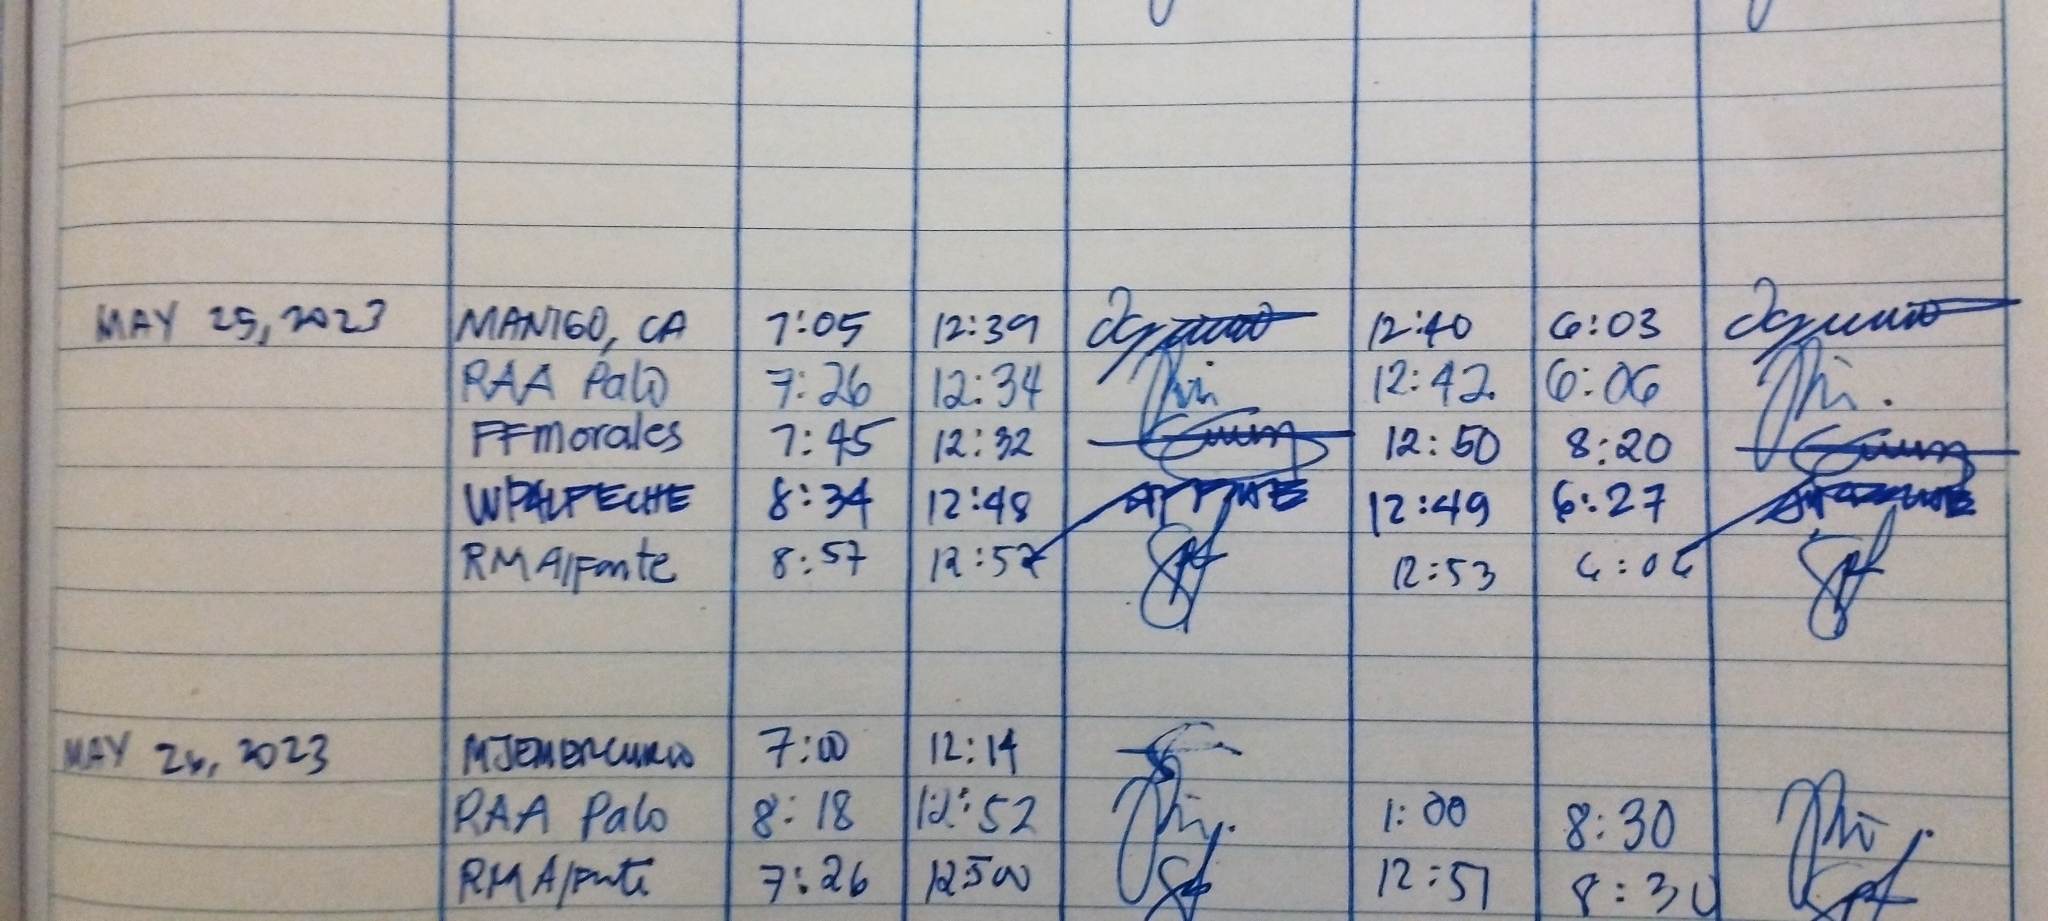 MAY 25, 2023 MANIGO, CA 7:05 12:39 12:40 6:03
RAA Palo 7:26 12:34 12:42 6:06
FFmorales 7:45 12:32 12:50 8:20
WPALPECHE 8:34 12:48 12:49 6:27
RMAlfonte 8:57 12:52 12:53 6:06
MAY 26, 2023 MJEMERCURIO 7:00 12:14
RAA Palo 8:18 12:52 1:00 8:30
RMAlfonte 7:26 12:51 8:30